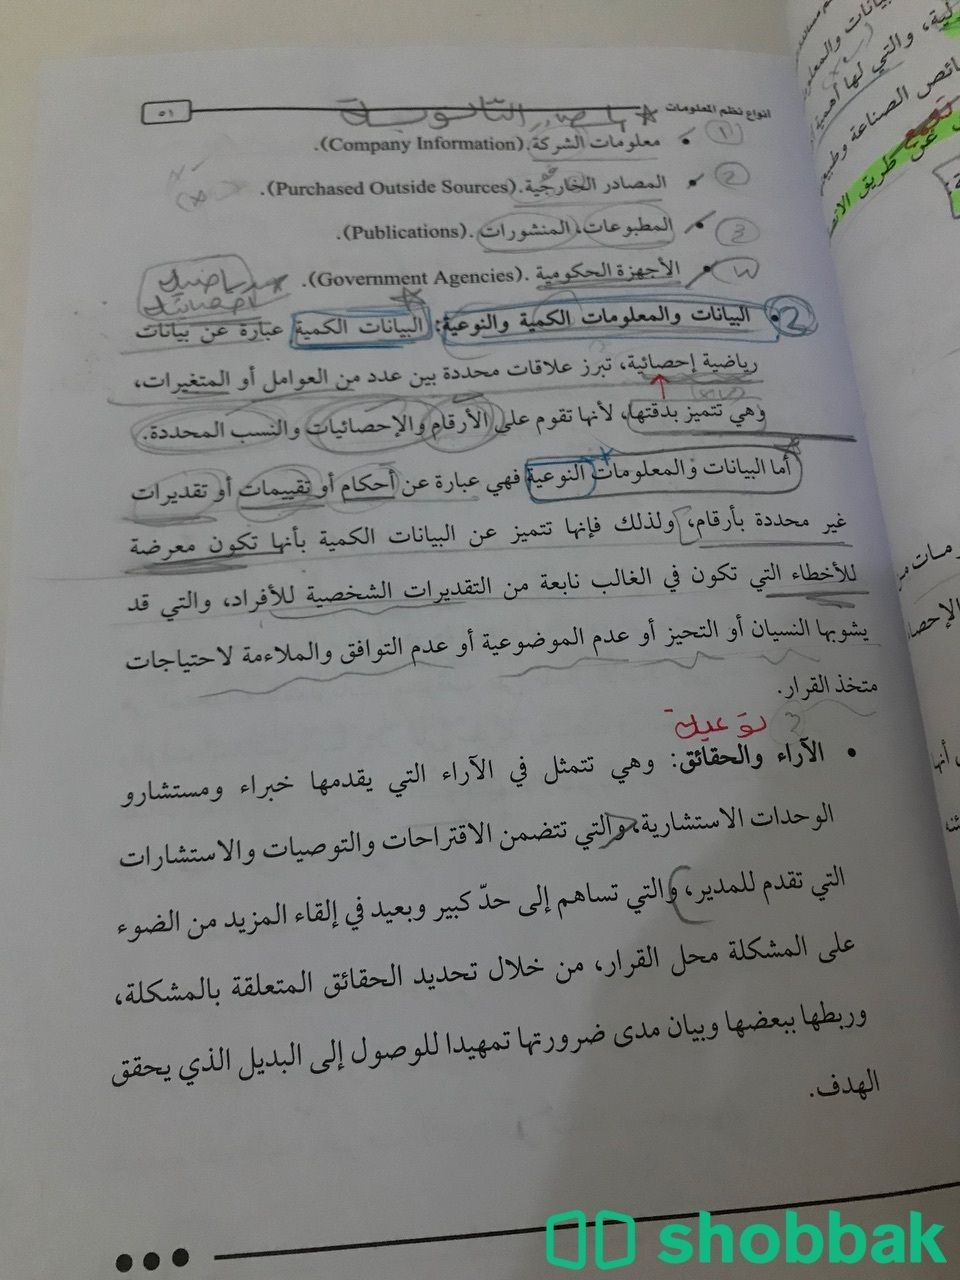 انواع نظم المعلومات
٥١
المصادر الثانوية
1 • معلومات الشركة. (Company Information).
2 • المصادر الخارجية. (Purchased Outside Sources).
3 • المطبوعات، المنشورات. (Publications).
• الأجهزة الحكومية. (Government Agencies).
رياضية
احصائية
2 • البيانات والمعلومات الكمية والنوعية: البيانات الكمية عبارة عن بيانات
رياضية إحصائية، تبرز علاقات محددة بين عدد من العوامل أو المتغيرات،
وهي تتميز بدقتها، لأنها تقوم على الأرقام والإحصائيات والنسب المحددة.
أما البيانات والمعلومات النوعية فهي عبارة عن أحكام أو تقييمات أو تقديرات
غير محددة بأرقام، ولذلك فإنها تتميز عن البيانات الكمية بأنها تكون معرضة
للأخطاء التي تكون في الغالب نابعة من التقديرات الشخصية للأفراد، والتي قد
يشوبها النسيان أو التحيز أو عدم الموضوعية أو عدم التوافق والملاءمة لاحتياجات
متخذ القرار.
نوعية
• الآراء والحقائق: وهي تتمثل في الآراء التي يقدمها خبراء ومستشارو
الوحدات الاستشارية، والتي تتضمن الاقتراحات والتوصيات والاستشارات
التي تقدم للمدير، والتي تساهم إلى حدّ كبير وبعيد في إلقاء المزيد من الضوء
على المشكلة محل القرار، من خلال تحديد الحقائق المتعلقة بالمشكلة،
وربطها ببعضها وبيان مدى ضرورتها تمهيدا للوصول إلى البديل الذي يحقق
الهدف.
shobbak